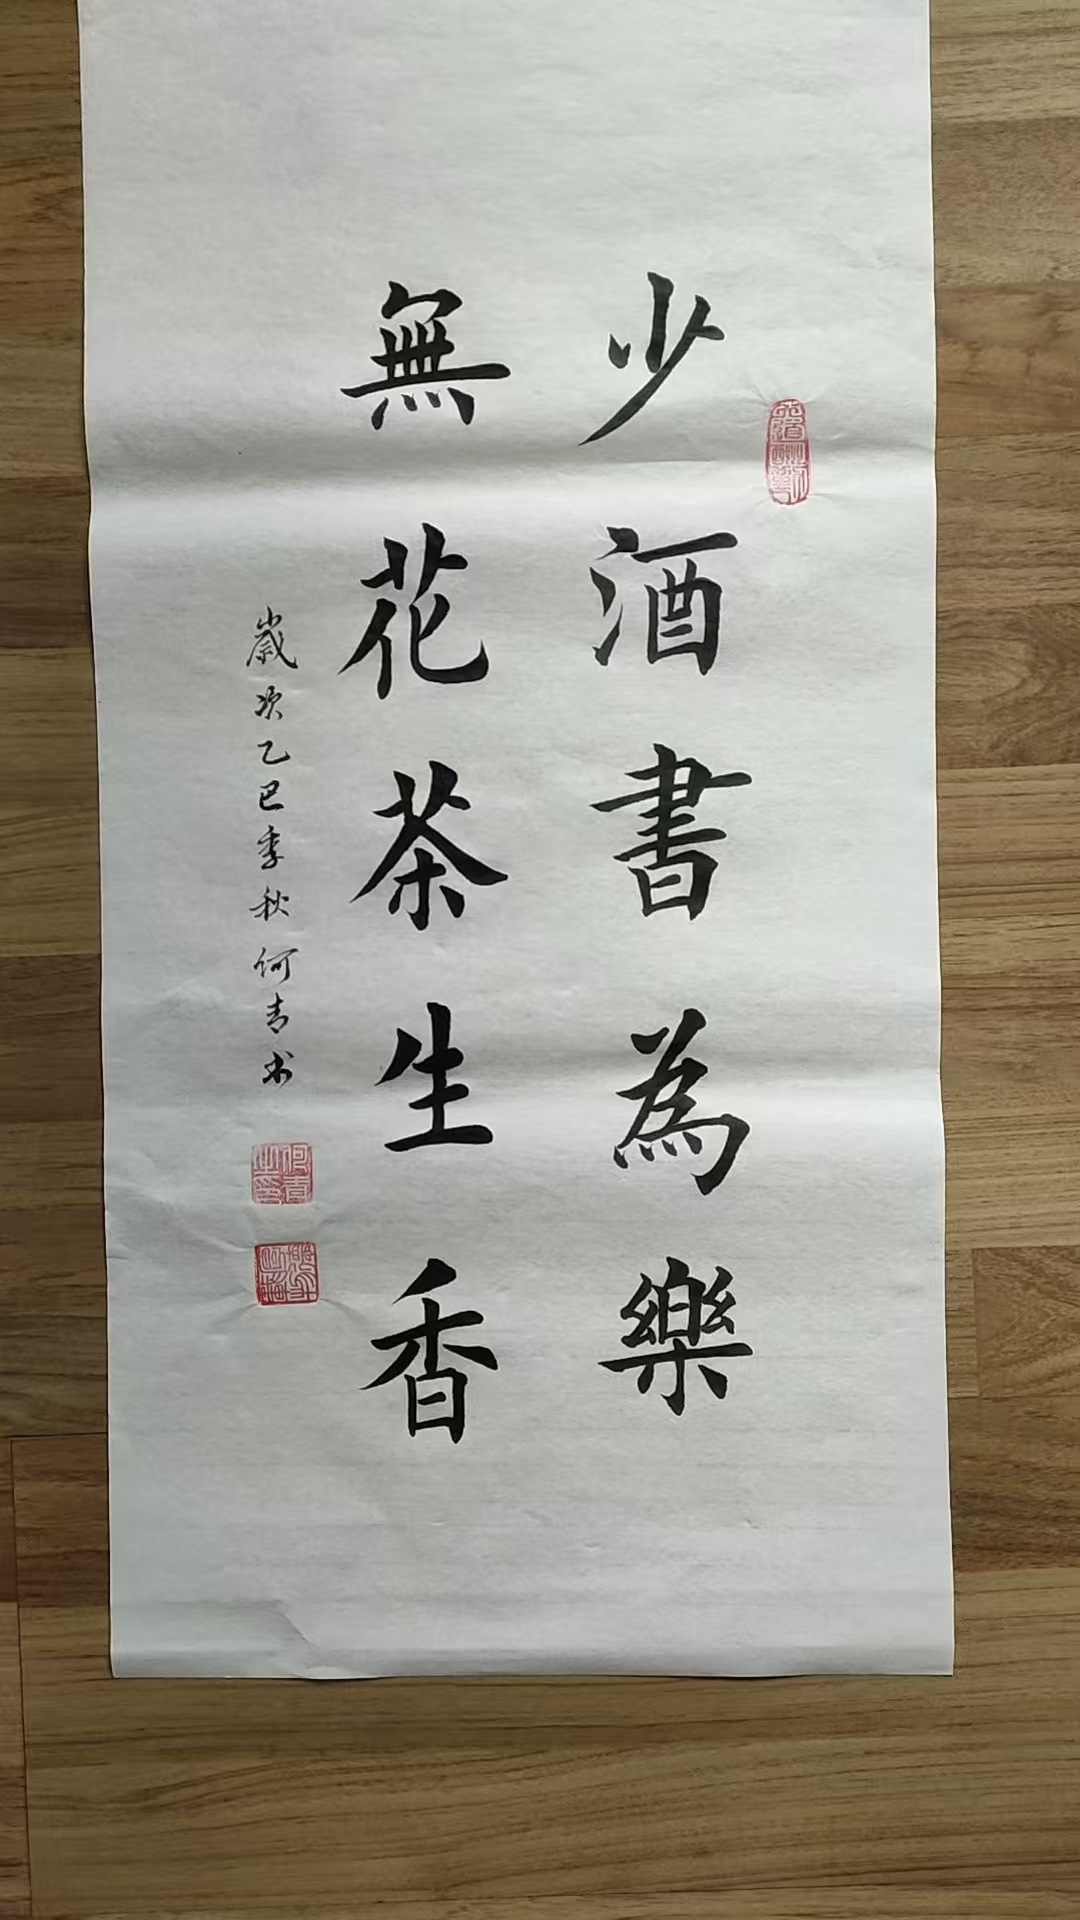 少酒書為樂
無花茶生香
歲次乙巳季秋何青书